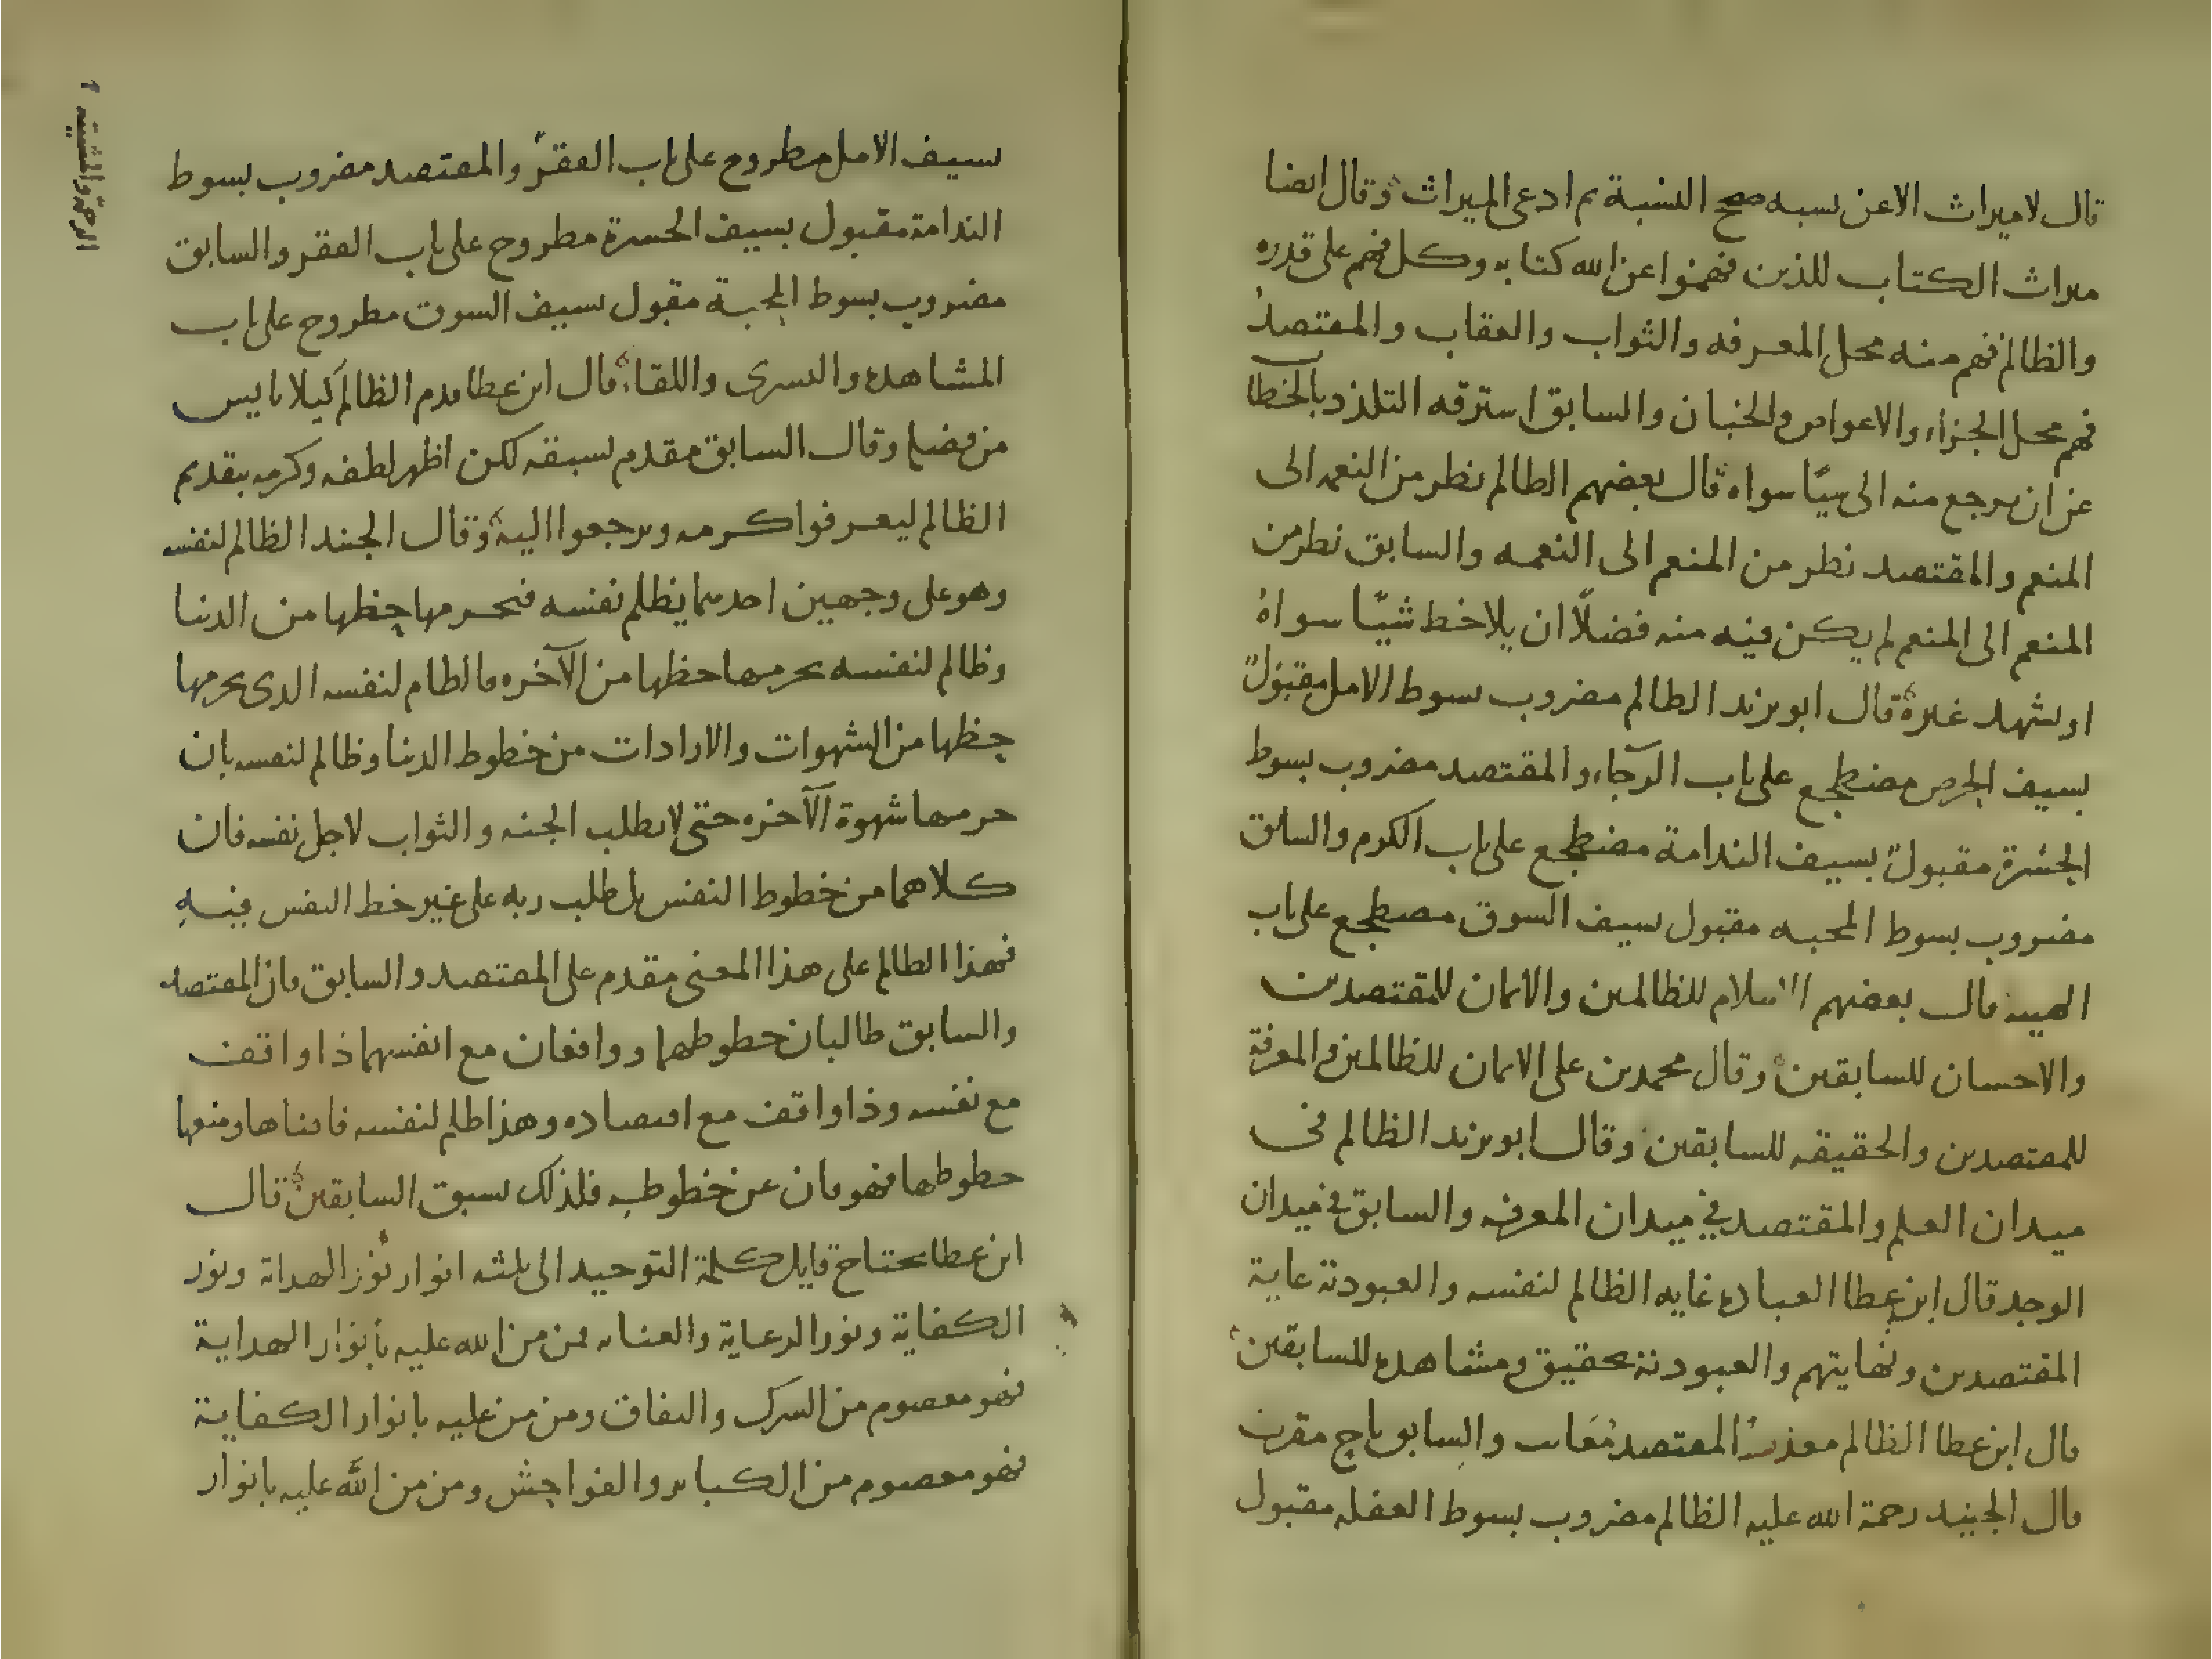 قال لا ميراث الا عن نسبه صحح النسبة ثم ادعى الميراث وقال ايضا
ميراث الكتاب للذين فهموا عن الله كتابه وكل فهم على قدره
والظالم فهم منه محل المعرفه والثواب والعقاب والمقتصد
فهم محل الجزاء والاعواض والجنبان والسابق استرقه التلذذ بالخطاب
عن ان يرجع منه الى شيئا سواه قال بعضهم الظالم نظر من النعمه الى
المنعم والمقتصد نظر من المنعم الى النعمه والسابق نظر من
المنعم الى المنعم لم يكن فيه منه فضلا ان يلاحظ شيئا سواه
او يشهد غيره قال ابو يزيد الظالم مضروب بسوط الامل مقتول
بسيف الحرص مضطجع على باب الرجاء والمقتصد مضروب بسوط
الحسرة مقتول بسيف الندامة مضطجع على باب الكرم والسابق
مضروب بسوط المحبه مقتول بسيف الشوق مضطجع على باب
الهيبه قال بعضهم الاسلام للظالمين والايمان للمقتصدين
والاحسان للسابقين وقال محمد بن على الايمان للظالمين والمعرفة
للمقتصدين والحقيقه للسابقين وقال ابو يزيد الظالم فى
ميدان العلم والمقتصد في ميدان المعرفه والسابق في ميدان
الوجد قال ابن عطا العباده غايه الظالم لنفسه والعبودية غاية
المقتصدين ونهايتهم والعبودية تحقيق ومشاهده للسابقين
قال ابن عطا الظالم معذب المقتصد معاتب والسابق ناج مقرب
قال الجنيد رحمة الله عليه الظالم مضروب بسوط الغفله مقتول
سيف الامل مطروح على باب الفقر والمقتصد مضروب بسوط
الندامة مقبول بسيف الحسرة مطروح على باب العفر والسابق
مضروب بسوط المحبة مقبول بسيف الشوق مطروح على باب
المشاهده والبسرى واللقاء قال ابن عطا قدم الظالم كيلا يايس
من فضله وقال السابق مقدم لسبقه لكن اظهر لطفه وكرمه بتقديم
الظالم ليعرفوا كرمه ويرجعوا اليه وقال الجنيد الظالم لنفسه
وهو على وجهين احدهما يظلم نفسه فيحرمها حظها من الدنيا
وظالم لنفسه يحرمها حظها من الآخره فالظالم لنفسه الذى يحرمها
حظها من الشهوات والارادات من حظوظ الدنيا وظالم لنفسه بان
حرمها شهوة الآخره حتى لا يطلب الجنه والثواب لاجل نفسه فان
كلاهما من حظوظ النفس بل طلب ربه على غير حظ النفس فيه
فهذا الظالم على هذا المعنى مقدم على المقتصد والسابق فان المقتصد
والسابق طالبان حظوظهما وواقفان مع انفسهما ذا واقف
مع نفسه وذا واقف مع اقتصاده وهذا ظلم لنفسه فافناها ومنعها
حظوظها فهو فان عن حظوظه فلذلك سبق السابقين قال
ابن عطا يحتاج قايل كلمة التوحيد الى ثلثه انوار نور الهداية ونور
الكفاية ونور الرعاية والعنايه فمن من الله عليه بأنوار الهداية
فهو معصوم من الشرك والنفاق ومن من عليه بانوار الكفاية
فهو معصوم من الكباير والفواحش ومن من الله عليه بانوار